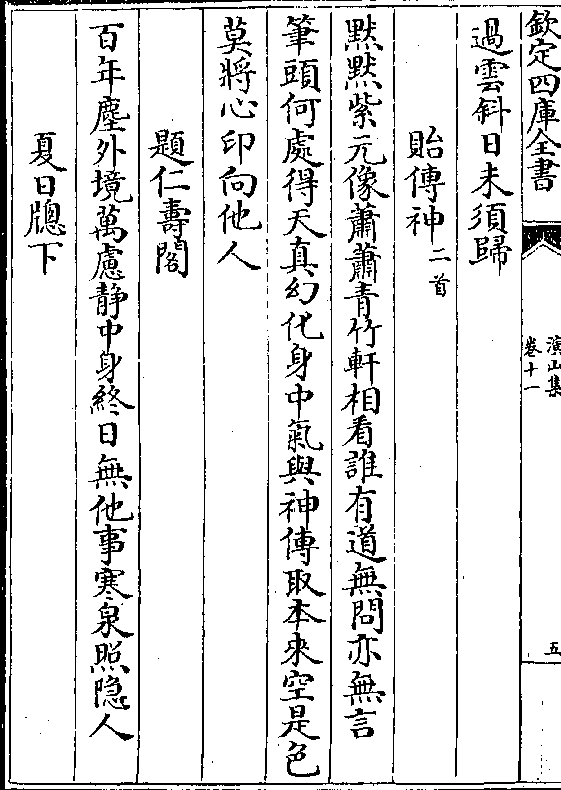 欽定四庫全書
演山集
卷十一
五
過雲斜日未須歸
貽傳神二首
默默紫元像蕭蕭青竹軒相看誰有道無問亦無言
筆頭何處得天真幻化身中氣與神傳取本來空是色
莫將心印向他人
題仁壽閣
百年塵外境萬慮静中身終日無他事寒泉照隐人
夏日牕下